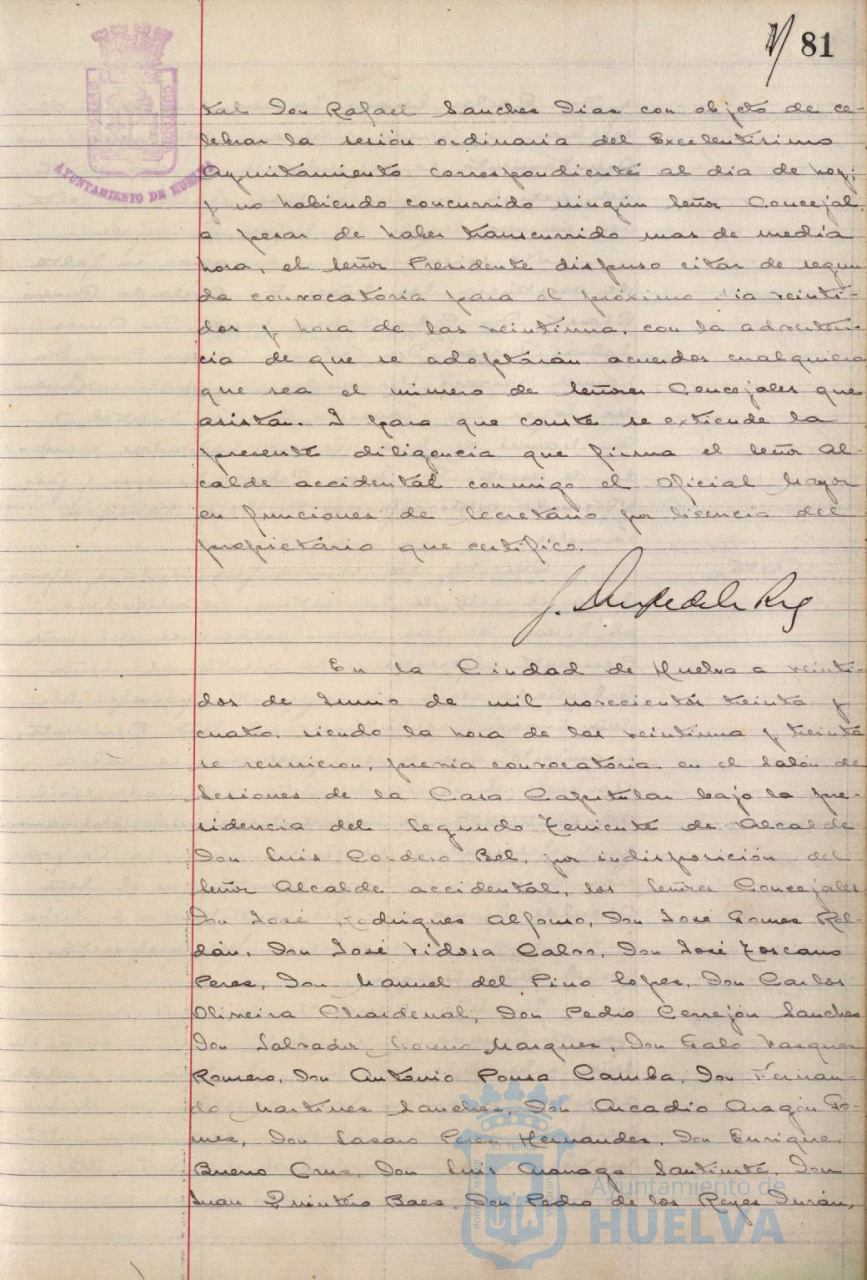 81
AYUNTAMIENTO DE HUELVA
tal Don Rafael Sanches Dias con objeto de ce-
lebrar la sesión ordinaria del Excelentísimo
Ayuntamiento correspondiente al dia de hoy;
y no habiendo concurrido ningún Señor Concejal,
a pesar de haber transcurrido mas de media
hora, el Señor Presidente dispuso citar de segun
da convocatoria para el próximo dia veinti-
dos y hora de las veintiuna, con la adverten-
cia de que se adoptarán acuerdos cualquiera
que sea el número de Señores Concejales que
asistan. I para que conste se extiende la
presente diligencia que firma el Señor Al-
calde accidental conmigo el Oficial Mayor
en funciones de Secretario por licencia del
propietario que certifico.
En la Ciudad de Huelva a veinti-
dos de Junio de mil novecientos treinta y
cuatro, siendo la hora de las veintiuna y treinta
se reunieron, previa convocatoria en el Salón de
Sesiones de la Casa Capitular bajo la pre-
sidencia del Segundo Teniente de Alcalde
Don Luis Cordero Bel, por indisposición del
Señor Alcalde accidental, los Señres Concejales
Don José Rodrigues Alfonso, Don José Gomes Rol-
dán, Don José Vidosa Calvo, Don José Toscano
Peres, Don Manuel del Pino Lopes, Don Carlos
Oliveira Chardenal, Don Pedro Cerrejón Sanches
Don Salvador Moreno Marques, Don Galo Vasques
Romero, Don Antonio Ponsa Camba, Don Fernan-
do Martines Sanches, Don Arcadio Aragón Go-
mes, Don Lasaro Peres Hernandes, Don Enrique
Bueno Crus, Don Luis Don
Juan Quintero Baes, Don Pedro de los Reyes Durán,
Ayuntamiento de
HUELVA